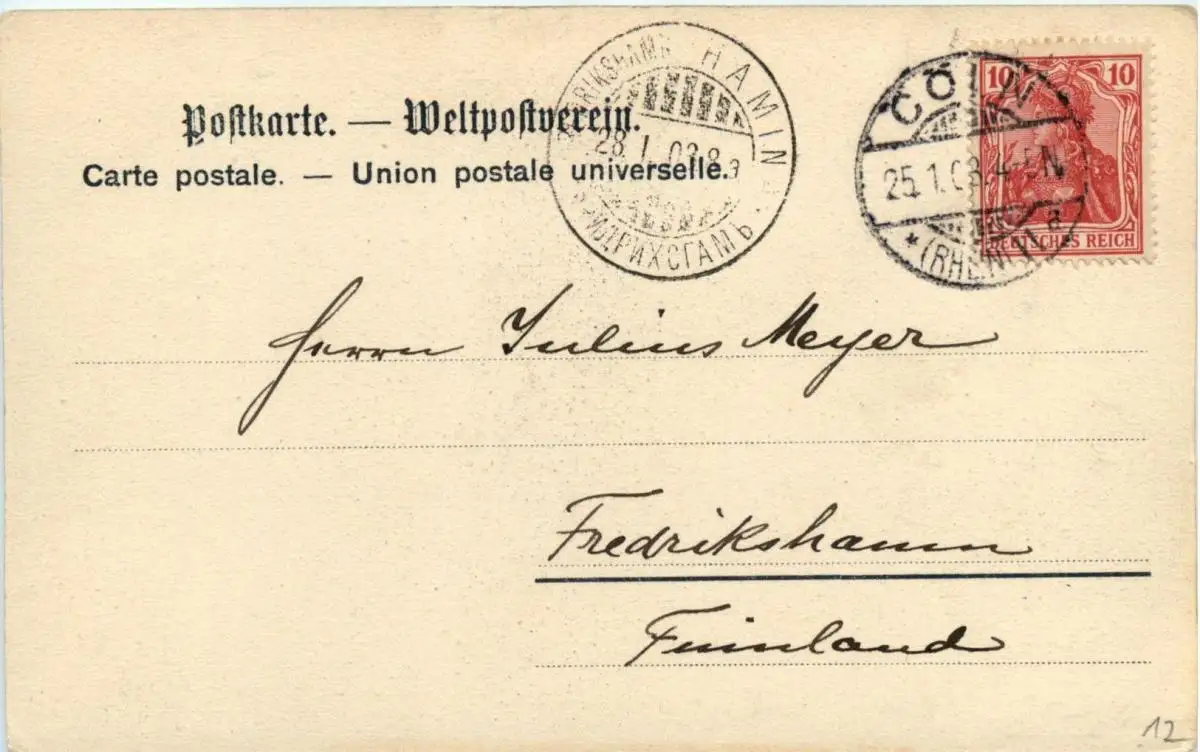 Postkarte. — Weltpostverein.
Carte postale. — Union postale universelle.
FREDRIKSHAMN HAMINA
28.1.03.8
ФРИДРИХСГАМЪ
CÖLN
25.1.03.4-5N
* (RHEIN) 1 a
10 10
DEUTSCHES REICH
Herrn Julius Meyer
Fredrikshamn
Finnland
12